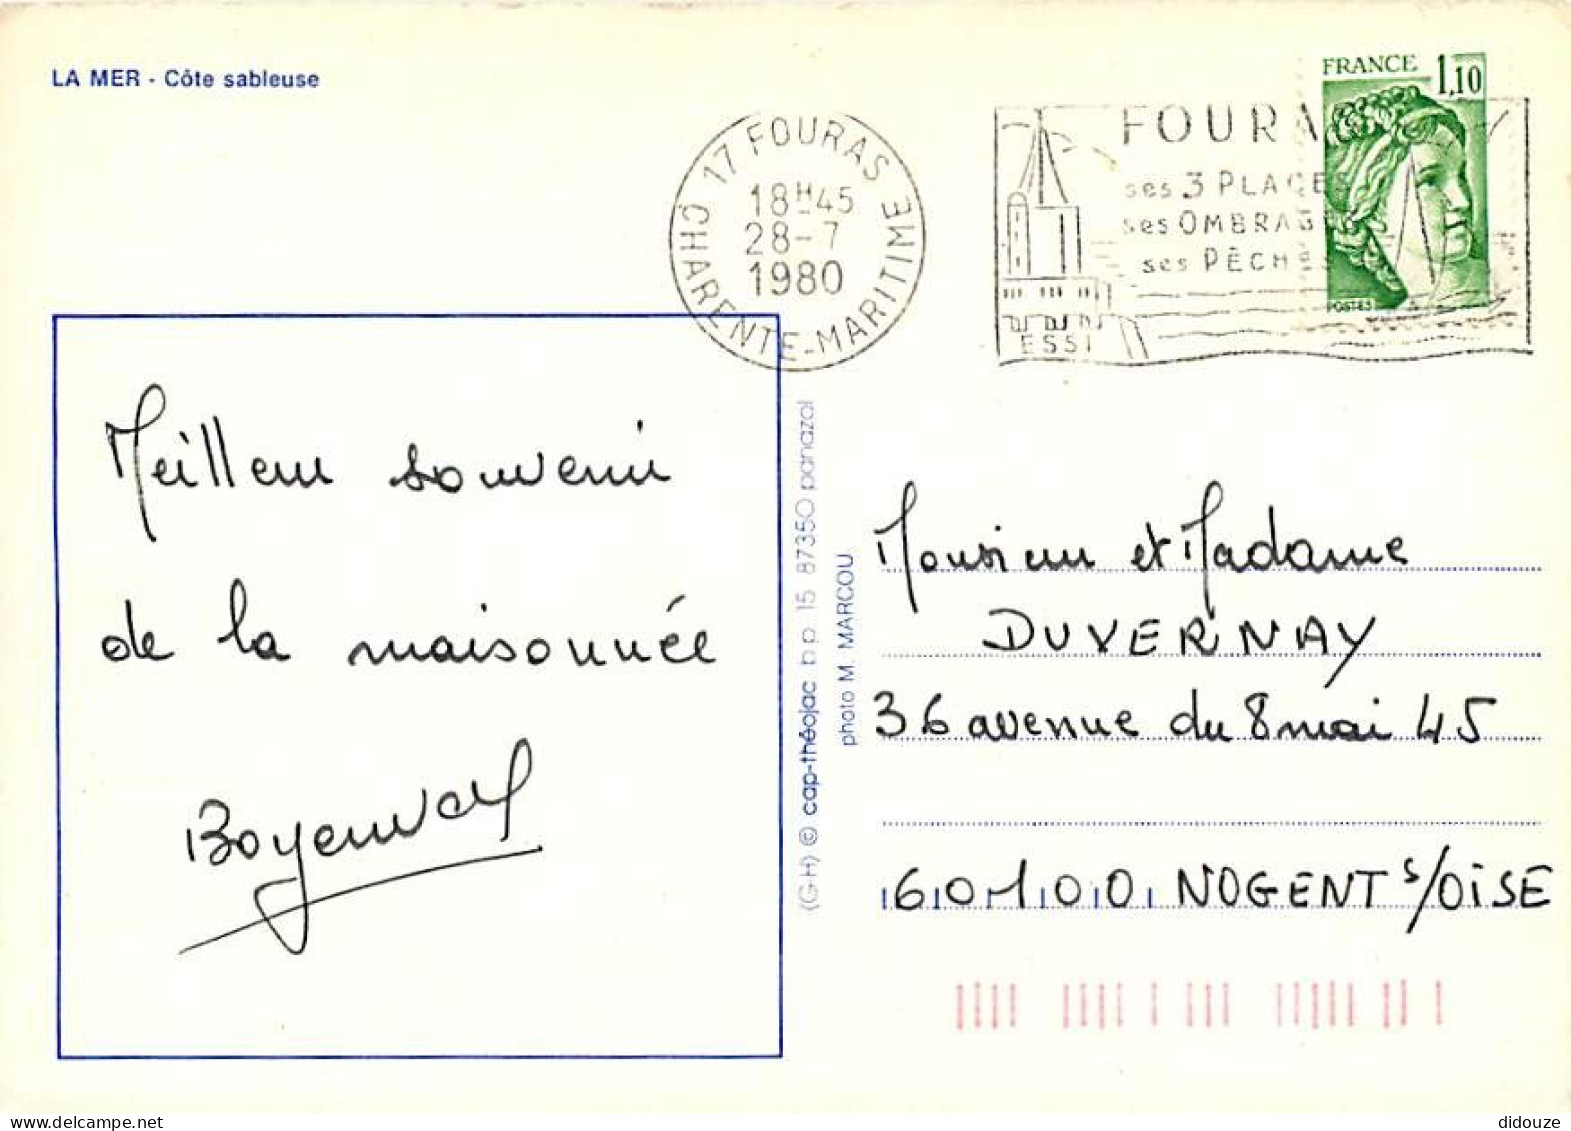 LA MER - Côte sableuse
17 FOURAS
18H45
28-7
1980
CHARENTE-MARITIME
FOURA
ses 3 PLAGES
ses OMBRAGES
ses PÊCHES
ESSI
FRANCE 1,10
POSTES
Meilleur souvenir
de la maisonnée
(G.H) © cap-théojac b p 15 87350 panazol
photo M. MARCOU
Monsieur et Madame
DUVERNAY
36 avenue du 8 mai 45
60100 NOGENT s/OISE
didouze